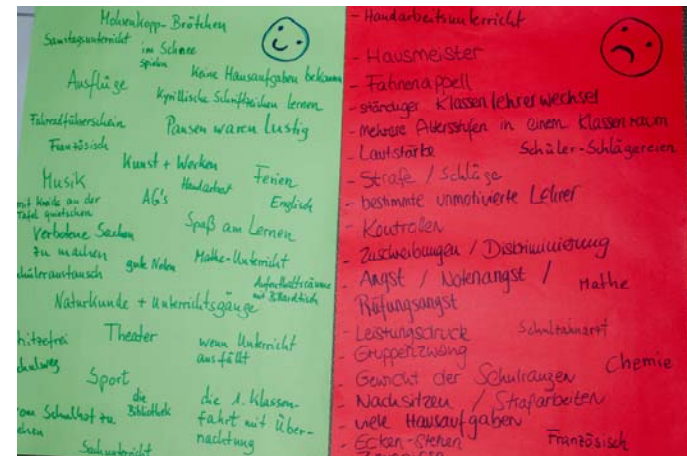 Mohrenkopp-Brötchen
Samstagsunterricht
im Schnee
spielen
Ausflüge
Keine Hausaufgaben bekommen
Kyrillische Schriftzeichen lernen
Fahrradführerschein
Pausen waren lustig
Französisch
Kunst + Werken
Musik
AG's
Handarbeit
Ferien
Englisch
mit Kreide an der
Tafel quietschen
Spaß am Lernen
Verbotene Sachen
zu machen
gute Noten
Mathe-Unterricht
Schüleraustausch
Aufenthaltsräume
mit Billardtisch
Naturkunde + Unterrichtsgänge
hitzefrei
Theater
wenn Unterricht
ausfällt
Schulweg
Sport
die
Bibliothek
die 1. Klassen-
fahrt mit Über-
nachtung
vom Schulhof zu
Sachunterricht
- Handarbeitsunterricht
- Hausmeister
- Fahnenappell
- ständiger Klassenlehrerwechsel
- mehrere Altersstufen in einem Klassenraum
- Lautstärke
Schüler-Schlägereien
- Strafe / Schläge
- bestimmte unmotivierte Lehrer
- Kontrollen
- Zuschreibungen / Diskriminierung
- Angst / Notenangst /
Mathe
Prüfungsangst
- Leistungsdruck
Schulzahnarzt
- Gruppenzwang
Chemie
- Gewicht der Schulranzen
- Nachsitzen / Strafarbeiten
- viele Hausaufgaben
- Ecken-Stehen
Französisch